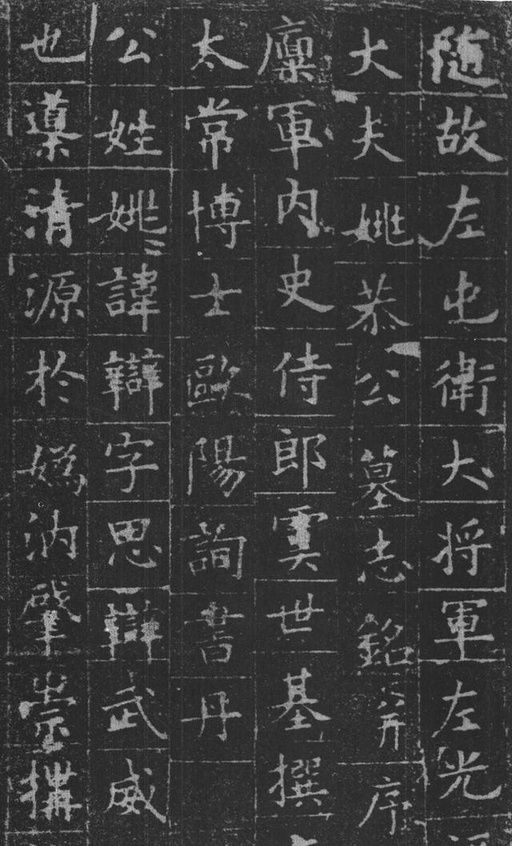 隨故左屯衛大將軍左光
大夫姚恭公墓志銘并序
廩軍内史侍郎虞世基撰
太常博士歐陽詢書丹
公姓姚諱辯字思辯武威
也導清源於媯汭肇崇搆